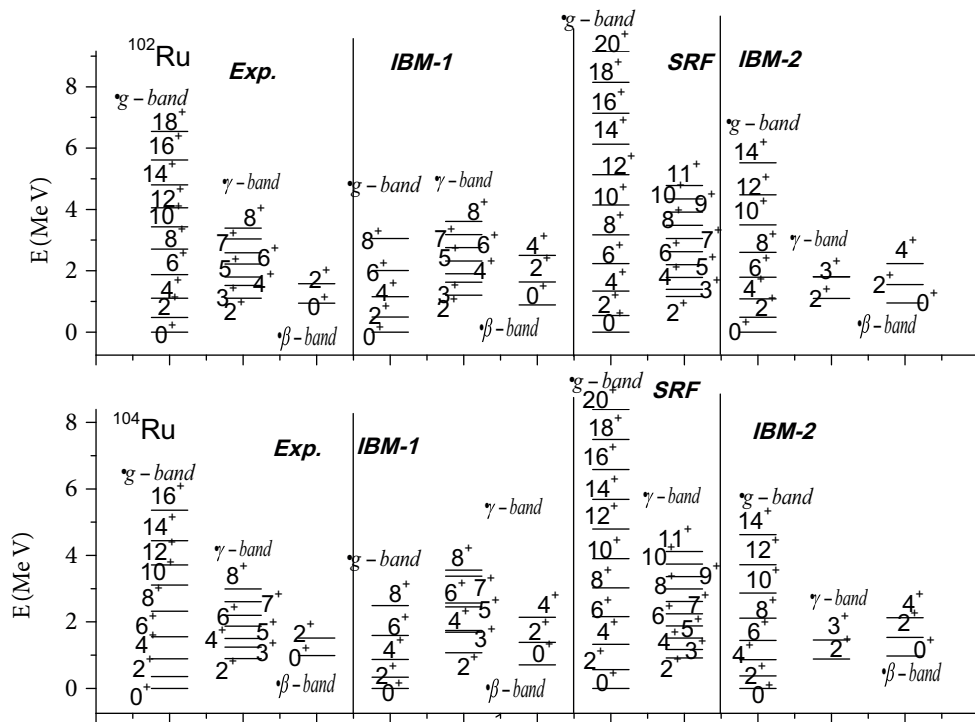 ¹⁰²Ru
Exp.
IBM-1
SRF
IBM-2
E (MeV)
8
6
4
2
0
g – band
18⁺
16⁺
14⁺
12⁺
10⁺
8⁺
6⁺
4⁺
2⁺
0⁺
γ – band
8⁺
7⁺
6⁺
5⁺
4⁺
3⁺
2⁺
2⁺
0⁺
β – band
g – band
8⁺
6⁺
4⁺
2⁺
0⁺
γ – band
8⁺
7⁺
6⁺
5⁺
4⁺
3⁺
2⁺
4⁺
2⁺
0⁺
β – band
g – band
20⁺
18⁺
16⁺
14⁺
12⁺
10⁺
8⁺
6⁺
4⁺
2⁺
0⁺
11⁺
10⁺
9⁺
8⁺
7⁺
6⁺
5⁺
4⁺
3⁺
2⁺
g – band
14⁺
12⁺
10⁺
8⁺
6⁺
4⁺
2⁺
0⁺
γ – band
3⁺
2⁺
4⁺
2⁺
0⁺
β – band
¹⁰⁴Ru
Exp.
IBM-1
SRF
IBM-2
E (MeV)
8
6
4
2
0
g – band
16⁺
14⁺
12⁺
10⁺
8⁺
6⁺
4⁺
2⁺
0⁺
γ – band
8⁺
7⁺
6⁺
5⁺
4⁺
3⁺
2⁺
2⁺
0⁺
β – band
g – band
8⁺
6⁺
4⁺
2⁺
0⁺
γ – band
8⁺
7⁺
6⁺
5⁺
4⁺
3⁺
2⁺
4⁺
2⁺
0⁺
β – band
g – band
20⁺
18⁺
16⁺
14⁺
12⁺
10⁺
8⁺
6⁺
4⁺
2⁺
0⁺
γ – band
11⁺
10⁺
9⁺
8⁺
7⁺
6⁺
5⁺
4⁺
3⁺
2⁺
g – band
14⁺
12⁺
10⁺
8⁺
6⁺
4⁺
2⁺
0⁺
γ – band
3⁺
2⁺
4⁺
2⁺
0⁺
β – band